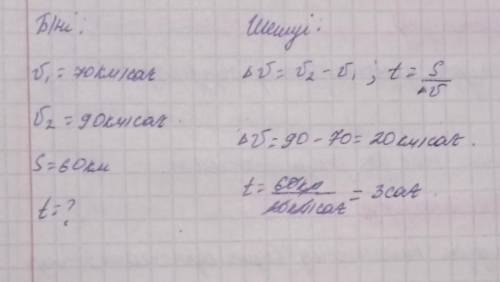 Б/ні:
v₁ = 70 км/сағ
v₂ = 90 км/сағ.
S = 60 км
t = ?
Шешуі:
△v = v₂ - v₁ ; t = S/△v
△v = 90 - 70 = 20 км/сағ.
t = 60 км/20 км/сағ = 3 сағ.